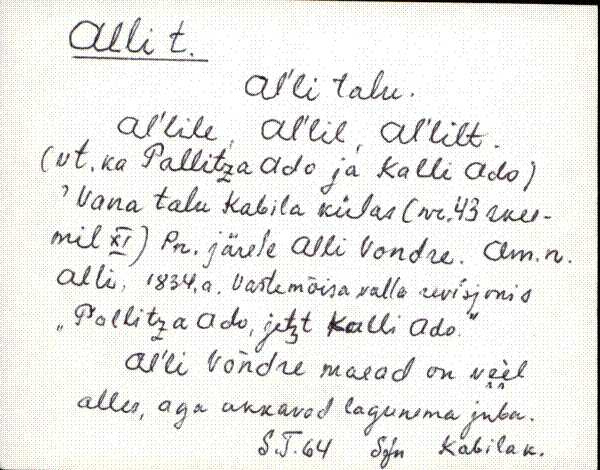 Alli t.
Al'li talu.
Al'lile, Al'lil, Al'lilt.
(vt. ka Pallitza Ado ja Kalli Ado)
Vana talu Kabila külas (nr. 43 skee-
mil XI) Pn. järele Alli Vondre. Am.n.
Alli, 1834.a. Vastemõisa valla revisjonis
„Pallitza Ado, jetzt Kalli Ado."
Al'li Vòndre maead on vèèl
alles, aga akkavad lagunema juba.
S.T. 64 Sjn Kabilak.